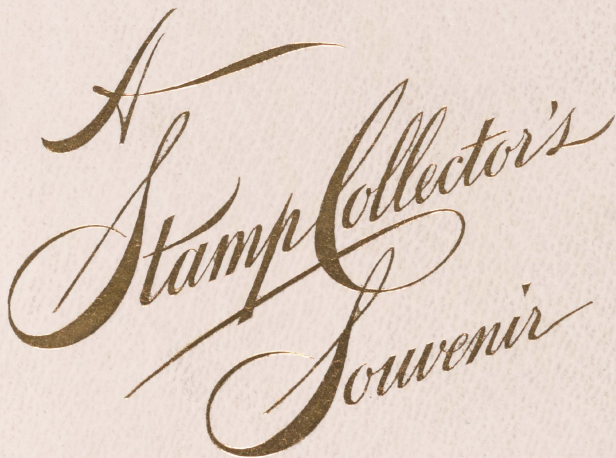 A
Stamp Collector's
Souvenir